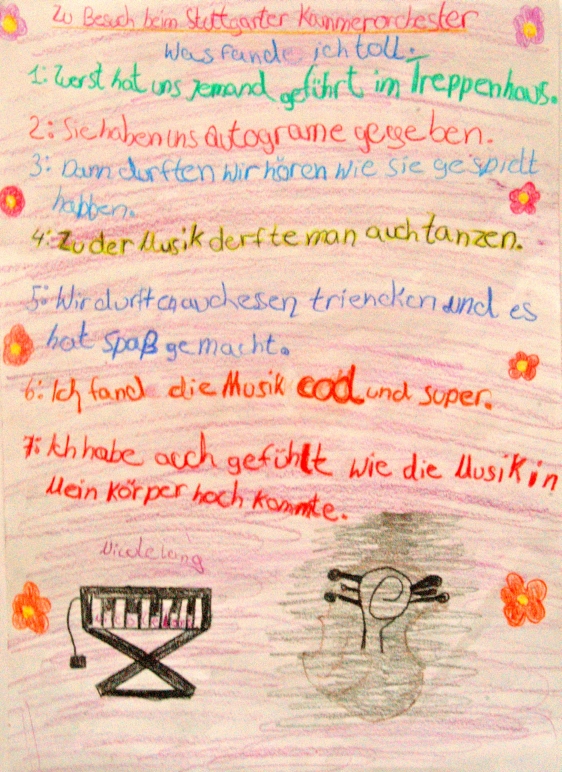 Zu Besuch beim Stuttgarter Kammerorchester
Was fande ich toll.
1: Zuerst hat uns jemand geführt im Treppenhaus.
2: Sie haben uns autograme gegeben.
3: Dann durften wir hören wie sie gespielt
habben.
4: Zu der Musik derfte man auch tanzen.
5: Wir durften auch esen triencken und es
hat Spaß gemacht.
6: Ich fand die Musik cool und super.
7: Ich habe auch gefühlt wie die Musik in
Mein Körper hoch kommte.